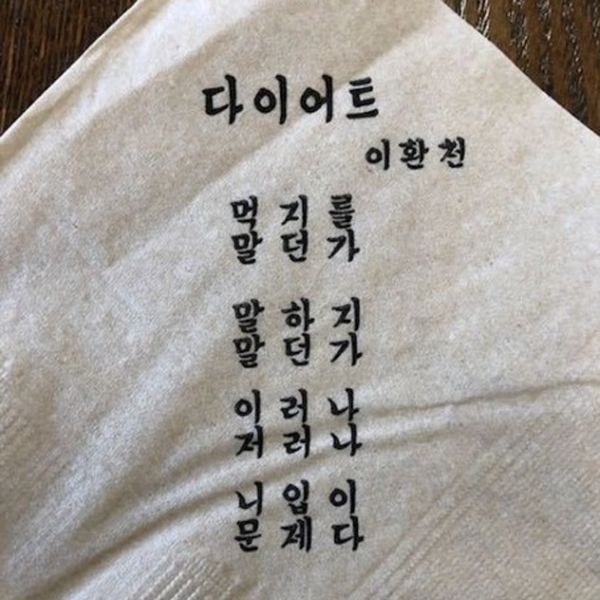 다이어트
이환천
먹지를
말던가
말하지
말던가
이러나
저러나
니입이
문제다